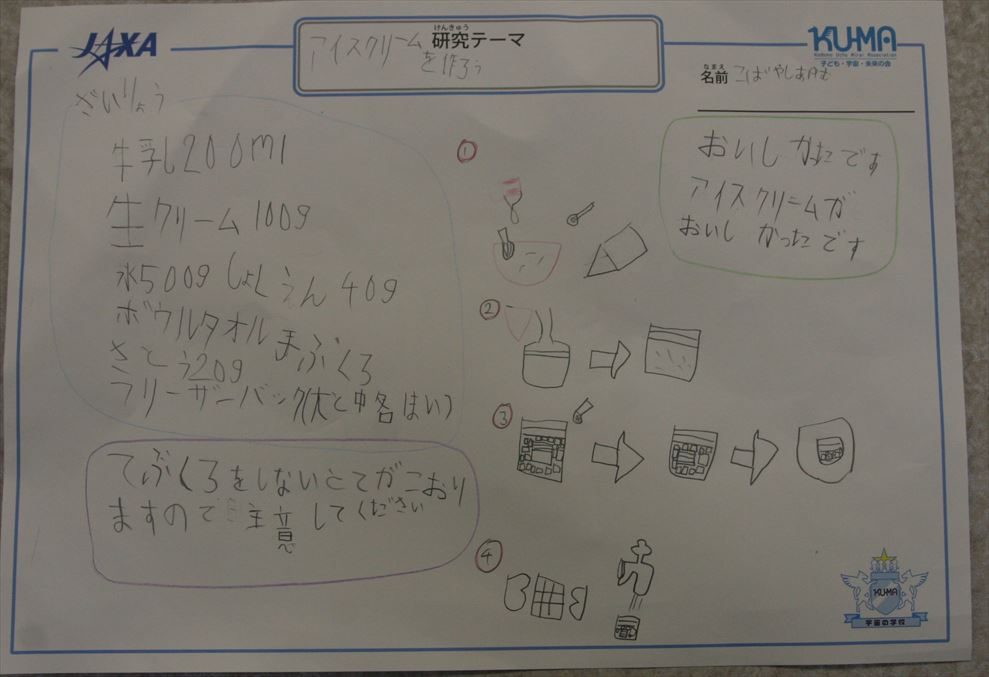 JAXA
けんきゅう
研究テーマ
アイスクリーム
を作ろう
KU-MA
Kodomo Uchu Mirai Association
子ども・宇宙・未来の会
なまえ
名前
ざいりょう
牛乳200ml
生クリーム100g
氷500gしょくえん40g
ボウルタオル
てぶくろ
さとう20g
フリーザーバック(大と中各
てぶくろをしないとてがこおり
ますので注意してください
おいしかったです
アイスクリームが
おいしかったです
①
②
③
④
KU-MA
宇宙の学校